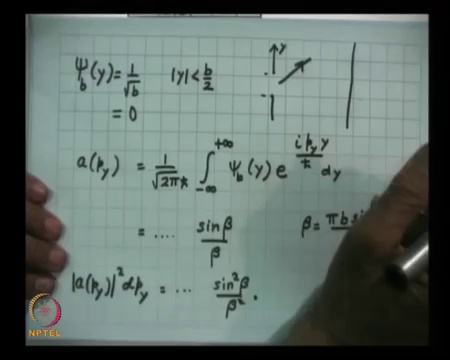 ψ_b(y) = 1/√b    |y| < b/2    y
= 0
a(p_y) = 1/√(2πħ) ∫_{-∞}^{+∞} ψ_b(y) e^{i p_y y/ħ} dy
= .... sin β / β    β = π b si
|a(p_y)|² dp_y = ... sin²β / β² .
NPTEL